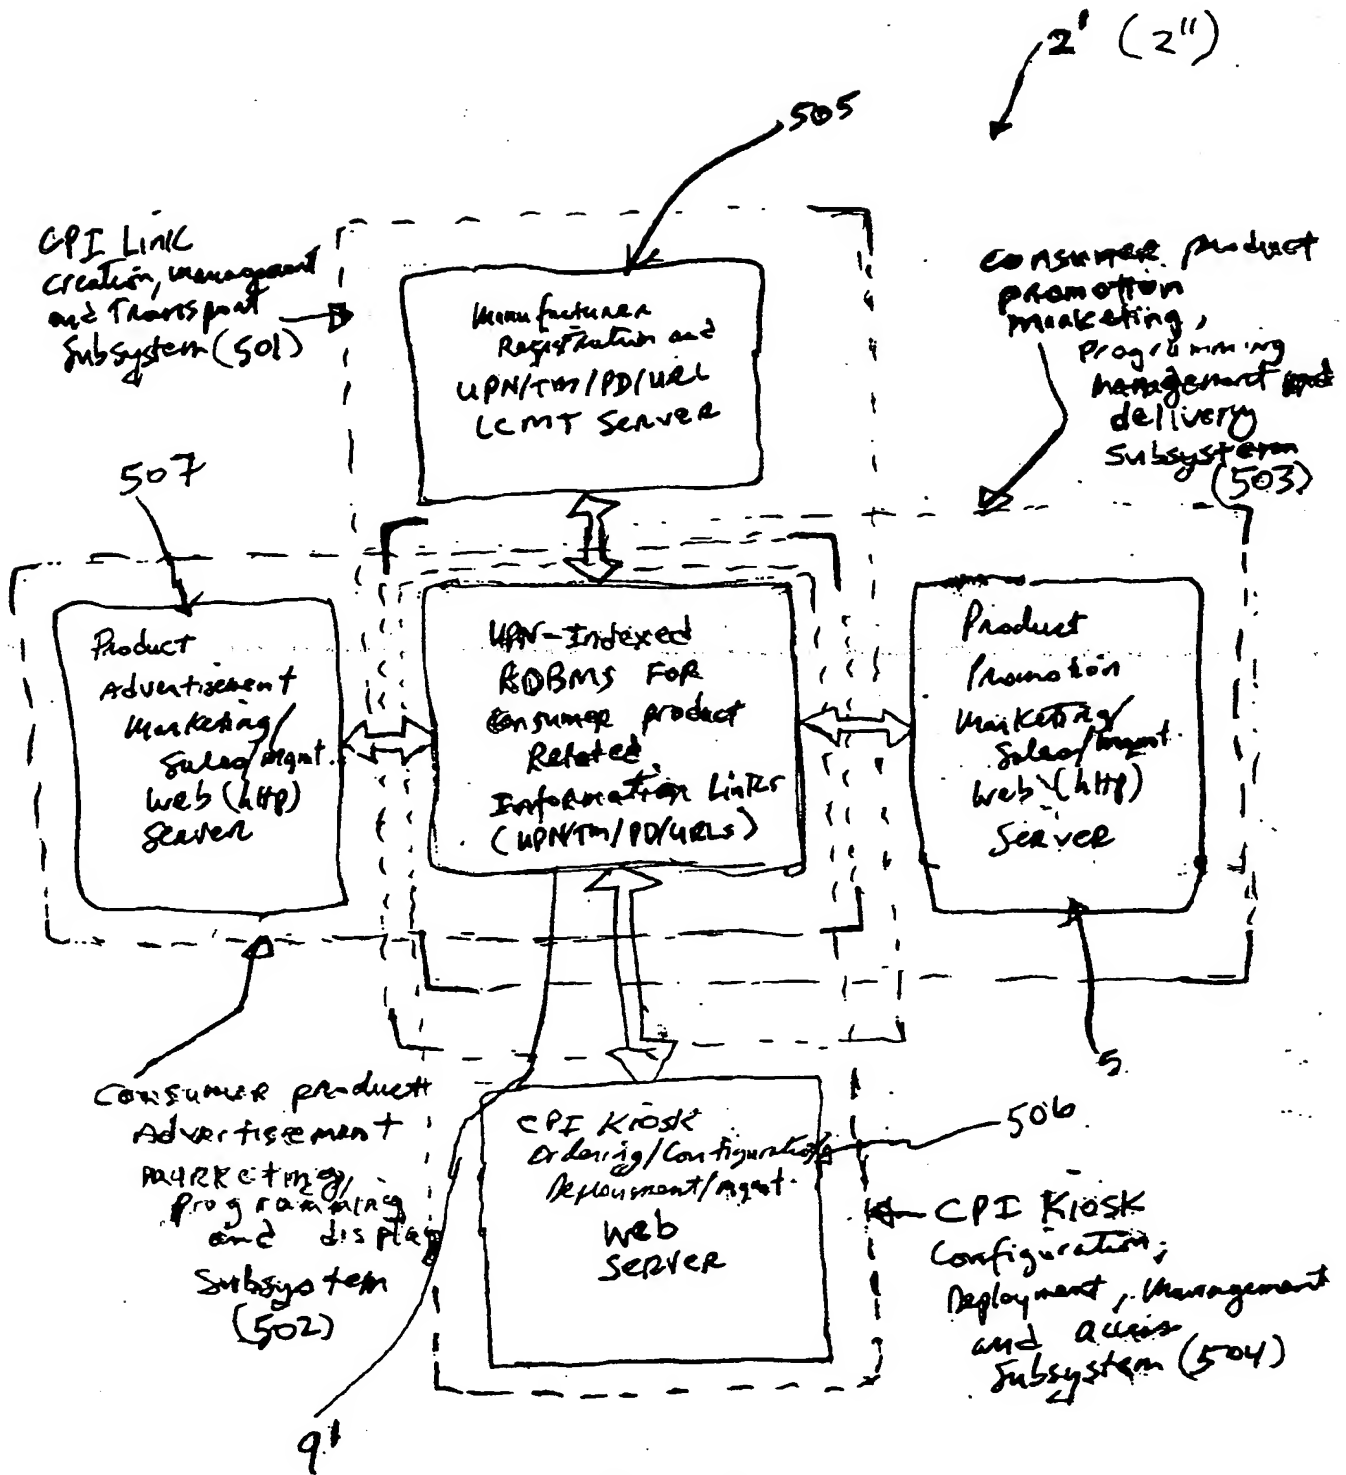 2' (2")
505
CPI Link
Creation, management
and Transport
Subsystem (501)
Manufacturer
Registration and
UPN/TM/PD/URL
LCMT Server
Consumer product
promotion
marketing,
programming
management and
delivery
Subsystem
(503)
507
Product
Advertisement
Marketing/
Sales/mgmt.
Web (http)
Server
UPN-Indexed
RDBMS FOR
Consumer product
Related
Information Links
(UPN/TM/PD/URLs)
Product
Promotion
Marketing/
Sales/mgmt.
Web (http)
Server
5
Consumer product
Advertisement
marketing,
programming
and display
Subsystem
(502)
CPI Kiosk
Ordering/Configuration
Deployment/mgmt.
Web
Server
506
CPI Kiosk
Configuration,
Deployment, Management
and access
Subsystem (504)
9'